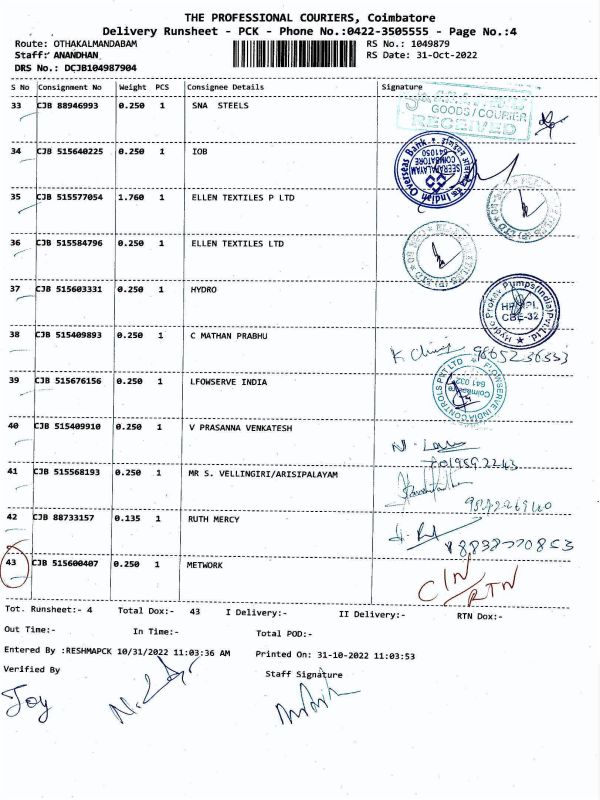 THE PROFESSIONAL COURIERS, Coimbatore
Delivery Runsheet - PCK - Phone No.:0422-3505555 - Page No.:4
Route: OTHAKALMANDABAM RS No.: 1049879
Staff: ANANDHAN RS Date: 31-Oct-2022
DRS No.: DCJB104987904
S No Consignment No Weight PCS Consignee Details Signature
33 CJB 88946993 0.250 1 SNA STEELS
GOODS/COURIER
RECEIVED
34 CJB 515640225 0.250 1 IOB
Indian Overseas Bank
SEERAPALAYAM
COIMBATORE
641050
35 CJB 515577054 1.760 1 ELLEN TEXTILES P LTD
36 CJB 515584796 0.250 1 ELLEN TEXTILES LTD
37 CJB 515603331 0.250 1 HYDRO
Hydro Prokav Pumps(India)Pvt.Ltd.
HPPIPL
CBE-32
38 CJB 515409893 0.250 1 C MATHAN PRABHU
39 CJB 515676156 0.250 1 LFOWSERVE INDIA
FLOWSERVE INDIA CONTROLS PVT LTD
Coimbatore
641 032
40 CJB 515409910 0.250 1 V PRASANNA VENKATESH
41 CJB 515568193 0.250 1 MR S. VELLINGIRI/ARISIPALAYAM
42 CJB 88733157 0.135 1 RUTH MERCY
43 CJB 515600407 0.250 1 METWORK
C/N/RTN
Tot. Runsheet:- 4 Total Dox:- 43 I Delivery:- II Delivery:- RTN Dox:-
Out Time:- In Time:- Total POD:-
Entered By :RESHMAPCK 10/31/2022 11:03:36 AM Printed On: 31-10-2022 11:03:53
Verified By Staff Signature
Joy